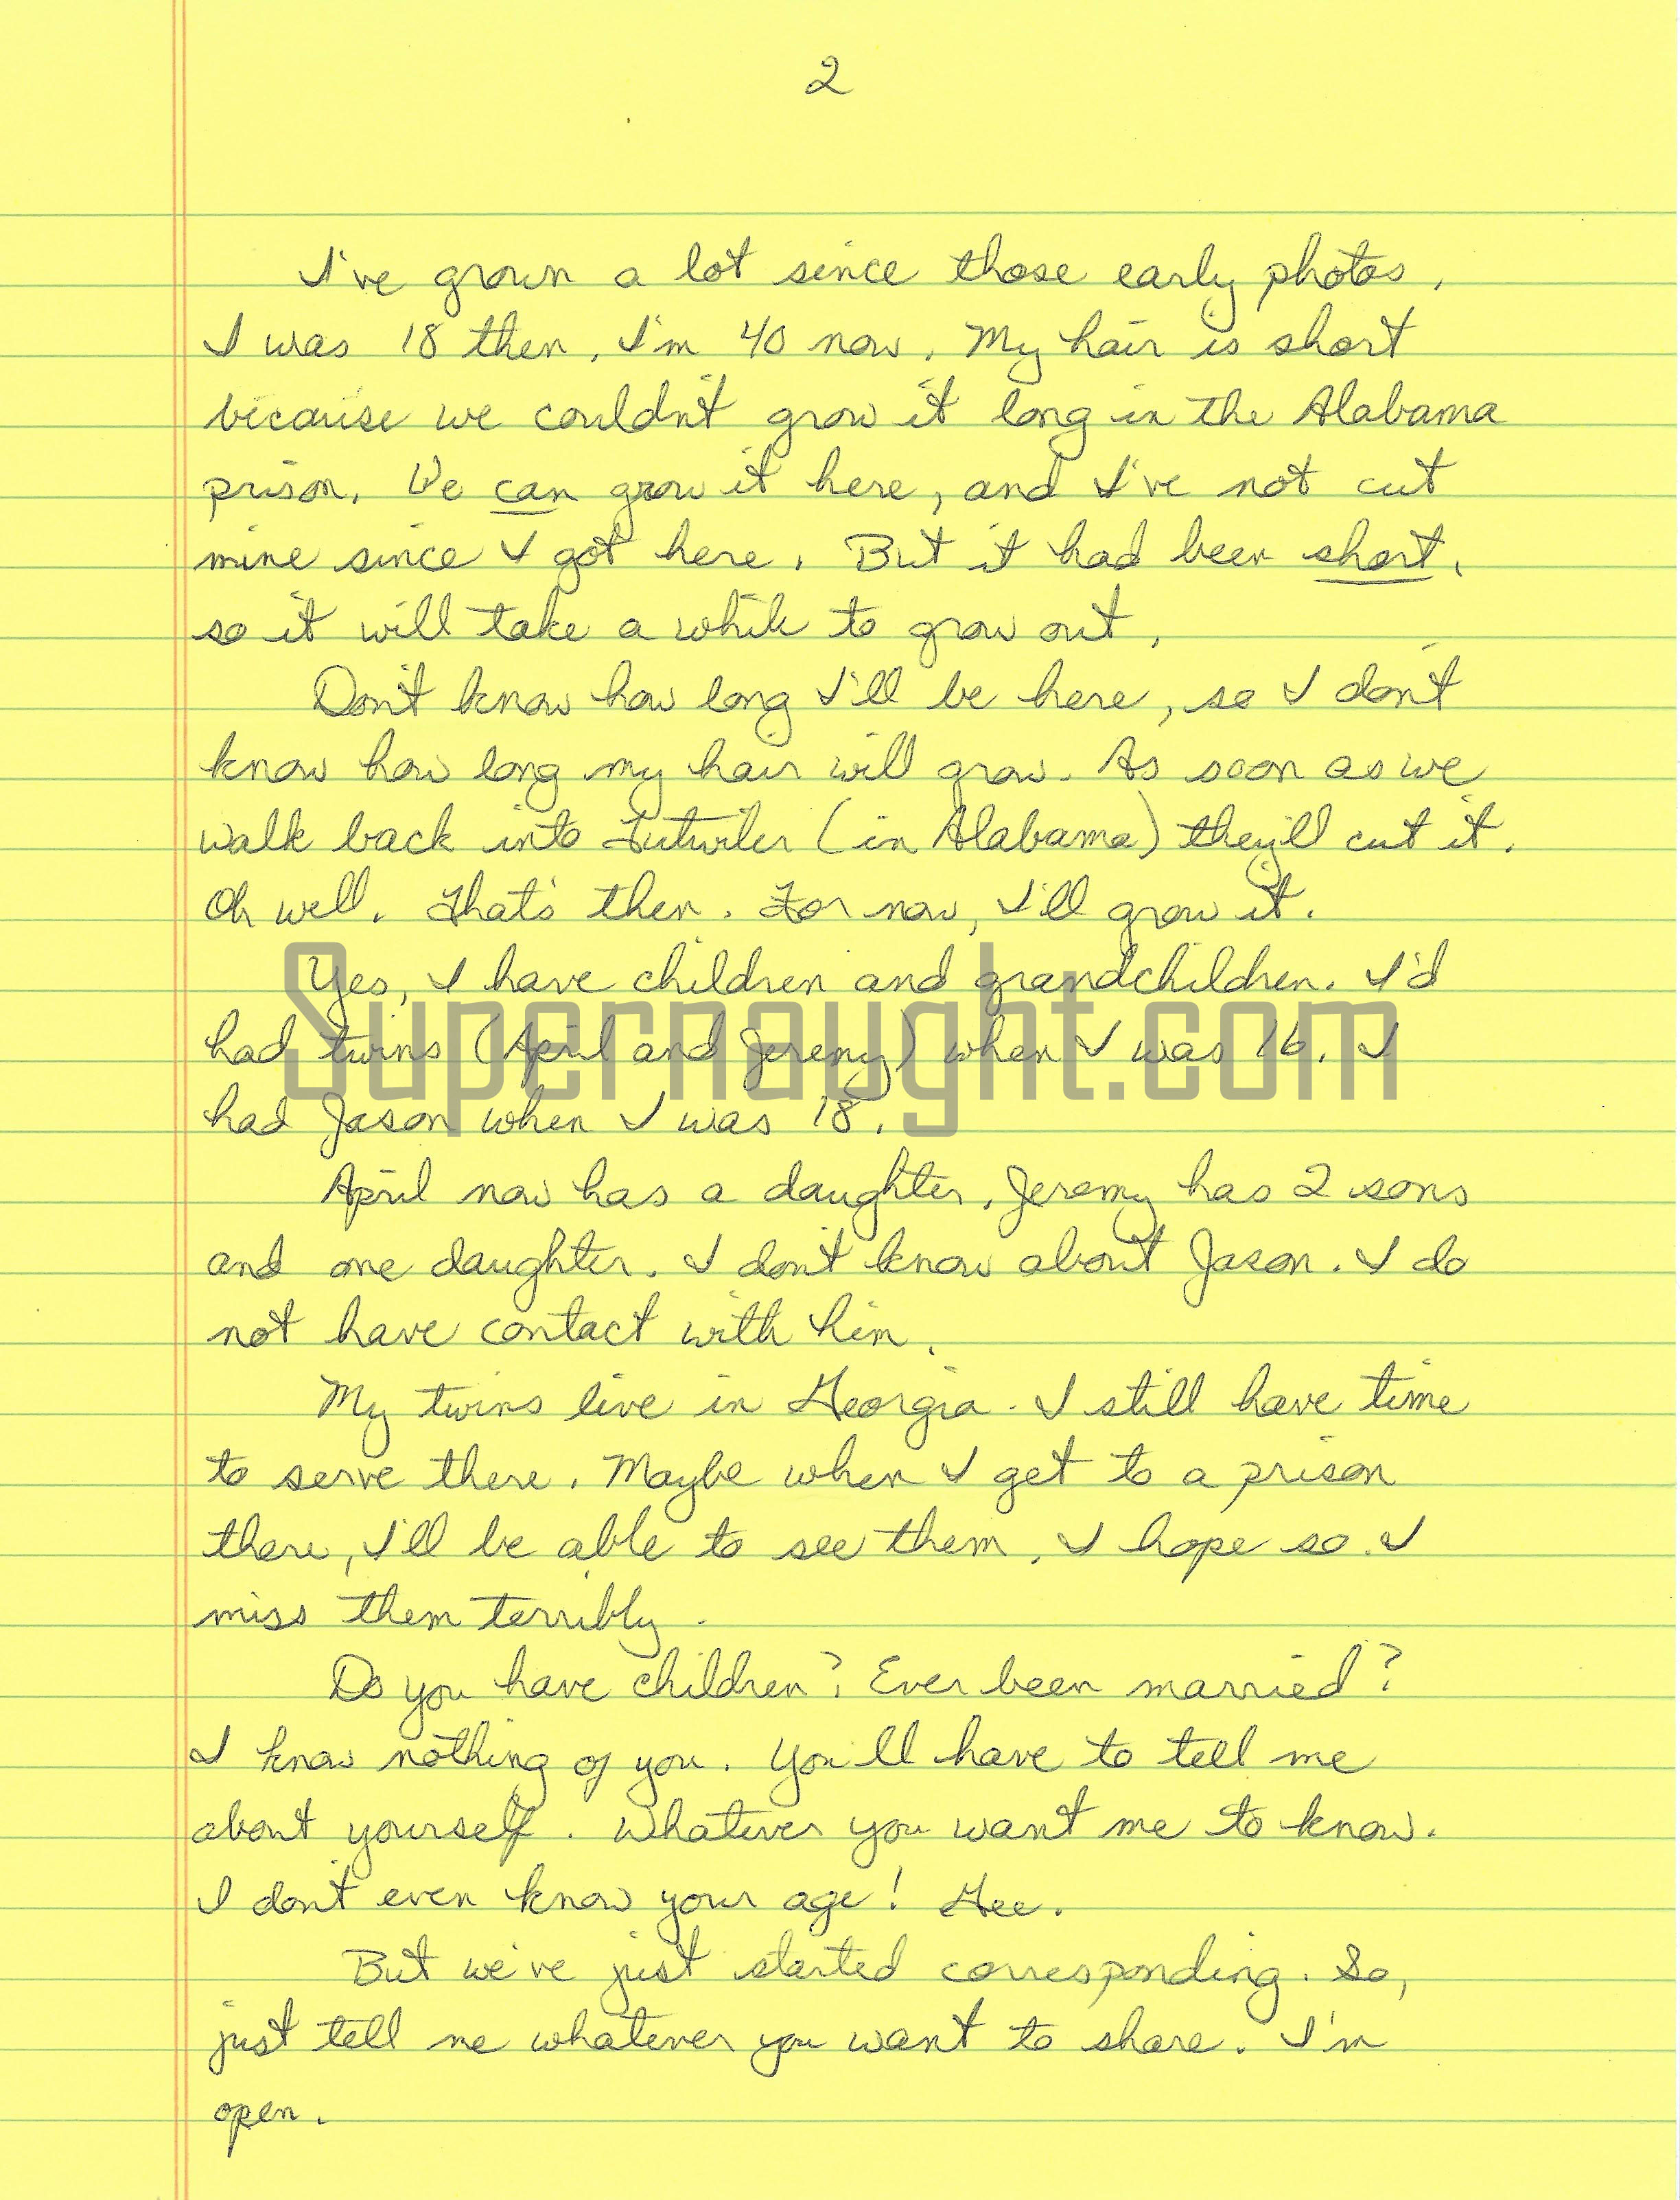 2
I've grown a lot since those early photos.
I was 18 then. I'm 40 now. My hair is short
because we couldn't grow it long in the Alabama
prison. We can grow it here, and I've not cut
mine since I got here. But it had been short,
so it will take a while to grow out.
Don't know how long I'll be here, so I don't
know how long my hair will grow. As soon as we
walk back into Tutwiler (in Alabama) they'll cut it.
Oh well. That's then. For now, I'll grow it.
Yes, I have children and grandchildren. I'd
had twins (April and Jeremy) when I was 16. I
had Jason when I was 18.
Supernaught.com
April now has a daughter. Jeremy has 2 sons
and one daughter. I don't know about Jason. I do
not have contact with him.
My twins live in Georgia. I still have time
to serve there. Maybe when I get to a prison
there, I'll be able to see them. I hope so. I
miss them terribly.
Do you have children? Ever been married?
I know nothing of you. You'll have to tell me
about yourself. Whatever you want me to know.
I don't even know your age! Gee.
But we've just started corresponding. So,
just tell me whatever you want to share. I'm
open.